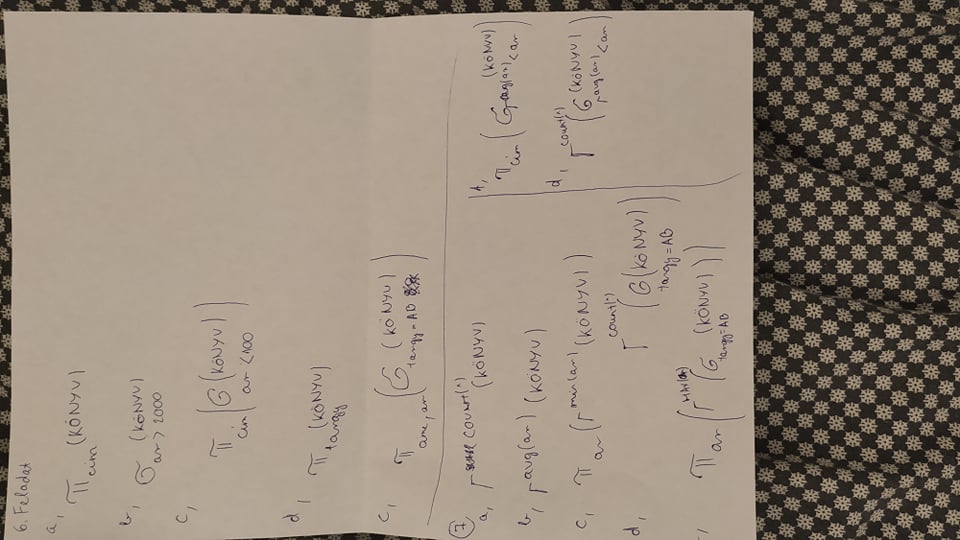 6. Feladat
a, π cim (KÖNYV)
b, σ ar > 2000 (KÖNYV)
c, π cim (σ ar < 100 (KÖNYV))
d, π targy (KÖNYV)
c, (σ targy = AB (KÖNYV))
7
a, Γ COUNT(*) (KÖNYV)
b, Γ avg(ar) (KÖNYV)
c, π ar (Γ (KÖNYV))
d, Γ count(*) (σ targy = AB (KÖNYV))
π ar (Γ (σ targy = AB (KÖNYV)))
A, π cim (σ avg(ar) < ar (KÖNYV))
d, Γ count(*) (σ Γ avg(ar) < ar (KÖNYV))